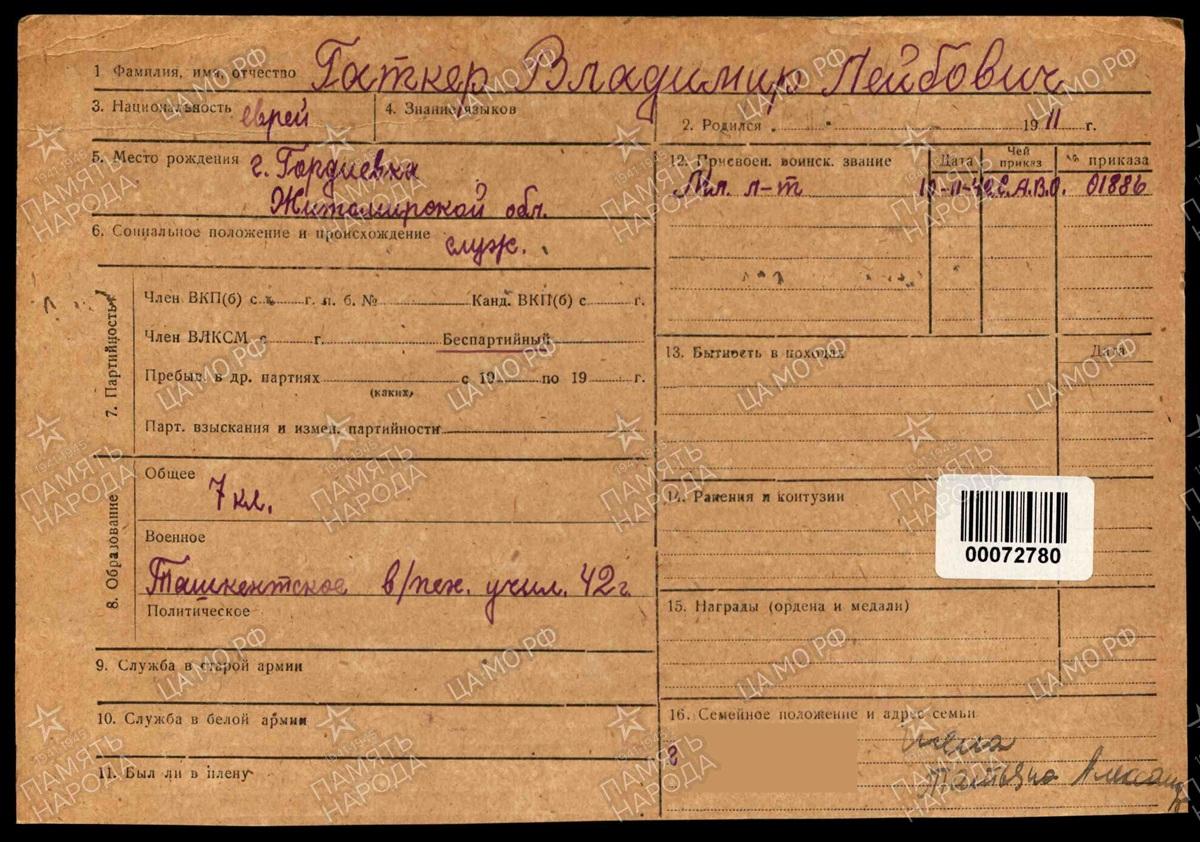 1 Фамилия, имя, отчество Гаткер Владимир Лейбович
3. Национальность еврей
4. Знание языков
2. Родился 19 11 г.
5. Место рождения г. Гордиевка
Житомирской обл.
6. Социальное положение и происхождение служ.
7. Партийность
Член ВКП(б) с г. п. б. № Канд. ВКП(б) с г.
Член ВЛКСМ с г. Беспартийный
Пребыв. в др. партиях с 19 по 19 г.
(каких)
Парт. взыскания и измен. партийности
8. Образование
Общее
7 кл.
Военное
Ташкентское в/пех. учил. 42 г.
Политическое
9. Служба в старой армии
10. Служба в белой армии
11. Был ли в плену
12. Присвоен. воинск. звание Дата Чей приказ № приказа
Мл. л-т С.А.В.О. 01886
13. Бытность в походах Дата
14. Ранения и контузии
00072780
15. Награды (ордена и медали)
16. Семейное положение и адрес семьи
г
жена
Татьяна
ПАМЯТЬ НАРОДА
1941-1945
ЦА МО РФ